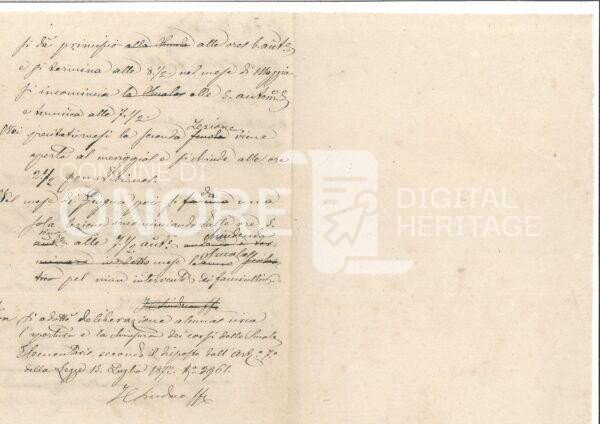 si dà principio alla Scuola alle ore 6. antᵉ
e si termina alle 8 1/2. nel mese di Maggio
si incomincia la Scuola alle 5. antim.
e termina alle 7. 1/2.
precitati mesi la seconda Lezione scuola viene
aperta al meriggio e si chiude alle ore
2 1/2 pomeridiane.
mese di Giugno poi si da una
sola lezione incominciando dalle ore 5.
alle 7 1/2 antᵉ chiudendo
in detto mese
pel niun intervento dei fanciulli.
Il Sindaco ff
si adotta deliberazione alcuna circa
l'apertura e la chiusura dei corsi delle Scuole
Elementari, secondo il disposto dell'Art.º 7.º
della Legge 15. Luglio 1877. N.º 3961.
Il Sindaco ff
COMUNE DI
ONORE
DIGITAL
HERITAGE